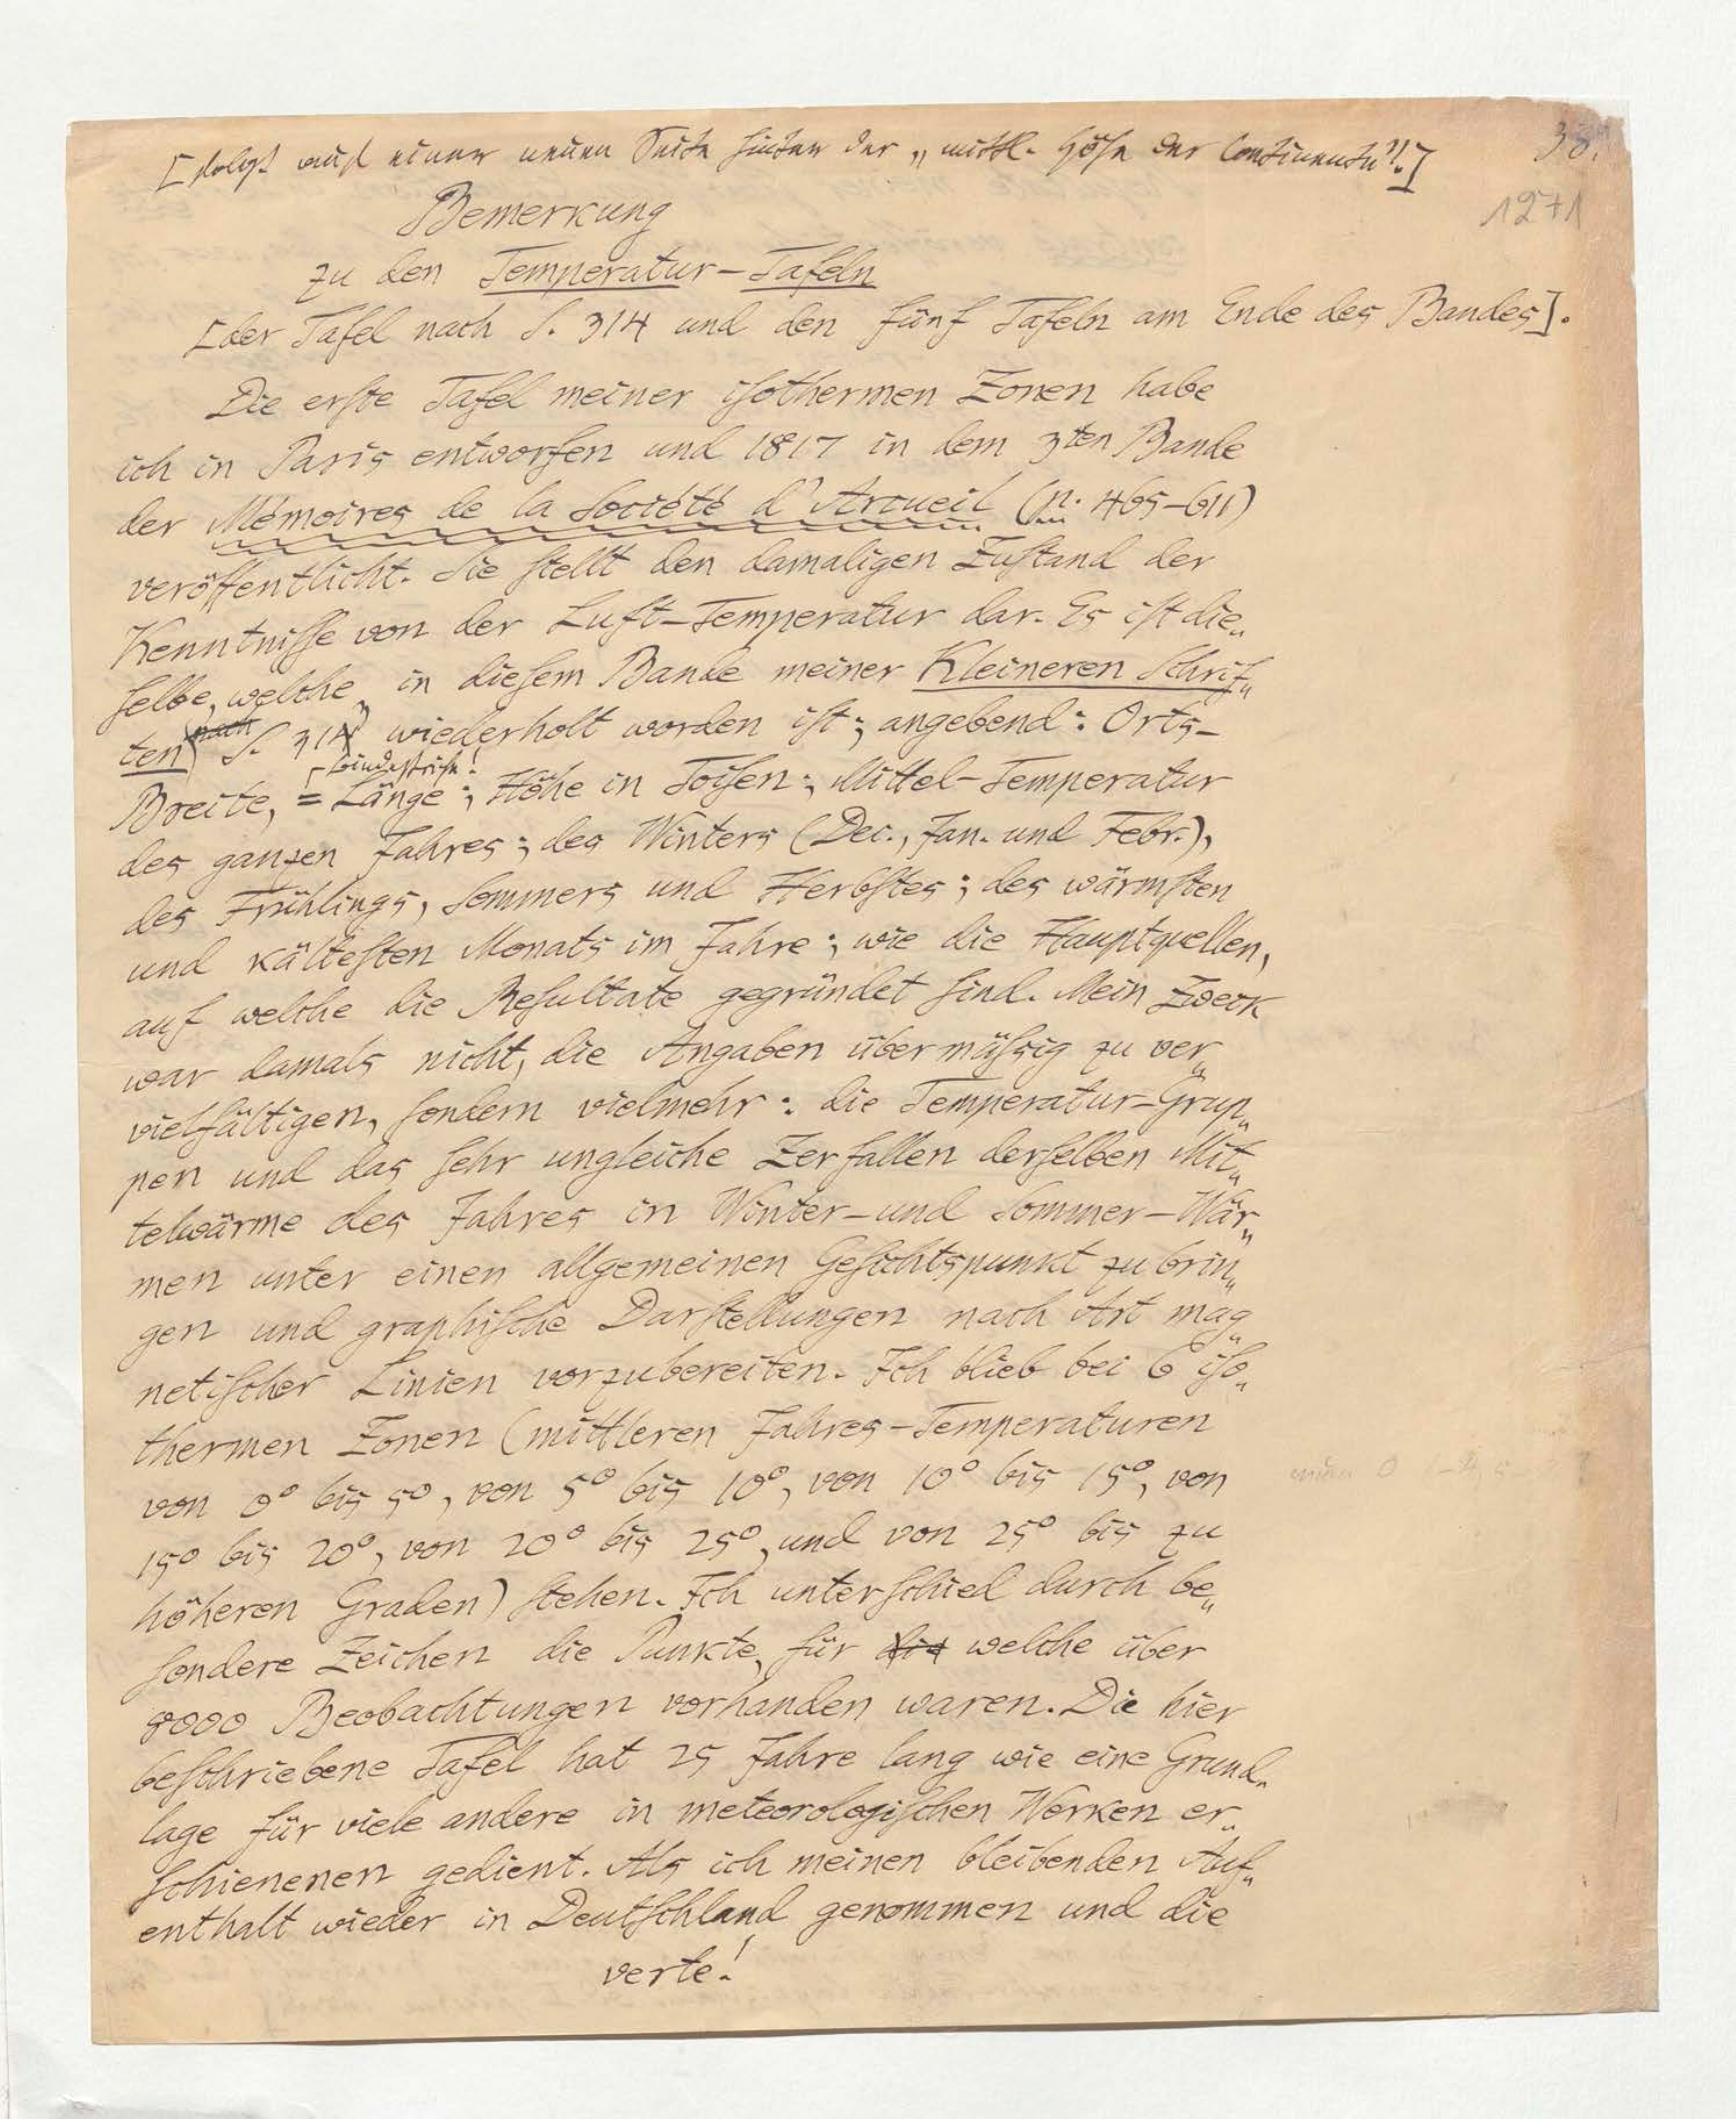 [folgt auf einer neuen Seite hinter der „mittl. Höhe der Continente".]
38.
1271
Bemerkung
zu den Temperatur-Tafeln
[der Tafel nach S. 314 und den fünf Tafeln am Ende des Bandes].
Die erſte Tafel meiner iſothermen Zonen habe
ich in Paris entworfen und 1817 in dem 3ten Bande
der Mémoires de la Société d'Arcueil (p. 465-611)
veröffentlicht. Sie ſtellt den damaligen Zuſtand der
Kenntniſſe von der Luft-Temperatur dar. Es iſt die„
ſelbe, welche in dieſem Bande meiner Kleineren Schrif„
ten nach S. 314 wiederholt worden iſt; angebend: Orts-
Bindestriche!
Breite, = Länge; Höhe in Toiſen; Mittel-Temperatur
des ganzen Jahres; des Winters (Dec., Jan. und Febr.),
des Frühlings, Sommers und Herbſtes; des wärmſten
und kälteſten Monats im Jahre; wie die Hauptquellen,
auf welche die Reſultate gegründet ſind. Mein Zweck
war damals nicht, die Angaben übermäſsig zu ver„
vielfältigen, ſondern vielmehr: die Temperatur-Grup„
pen und das ſehr ungleiche Zerfallen derſelben Mit„
telwärme des Jahres in Winter-und Sommer-Wär„
men unter einen allgemeinen Geſichtspunkt zu brin„
gen und graphiſche Darſtellungen nach Art mag„
netiſcher Linien vorzubereiten. Ich blieb bei 6 iſo„
thermen Zonen (mittleren Jahres-Temperaturen
von 0° bis 5°, von 5° bis 10°, von 10° bis 15°, von
15° bis 20°, von 20° bis 25°, und von 25° bis zu
höheren Graden) ſtehen. Ich unterſchied durch be„
ſondere Zeichen die Punkte, für die welche über
8000 Beobachtungen vorhanden waren. Die hier
beſchriebene Tafel hat 25 Jahre lang wie eine Grund„
lage für viele andere in meteorologiſchen Werken er„
ſchienenen gedient. Als ich meinen bleibenden Auf„
enthalt wieder in Deutſchland genommen und die
verte!